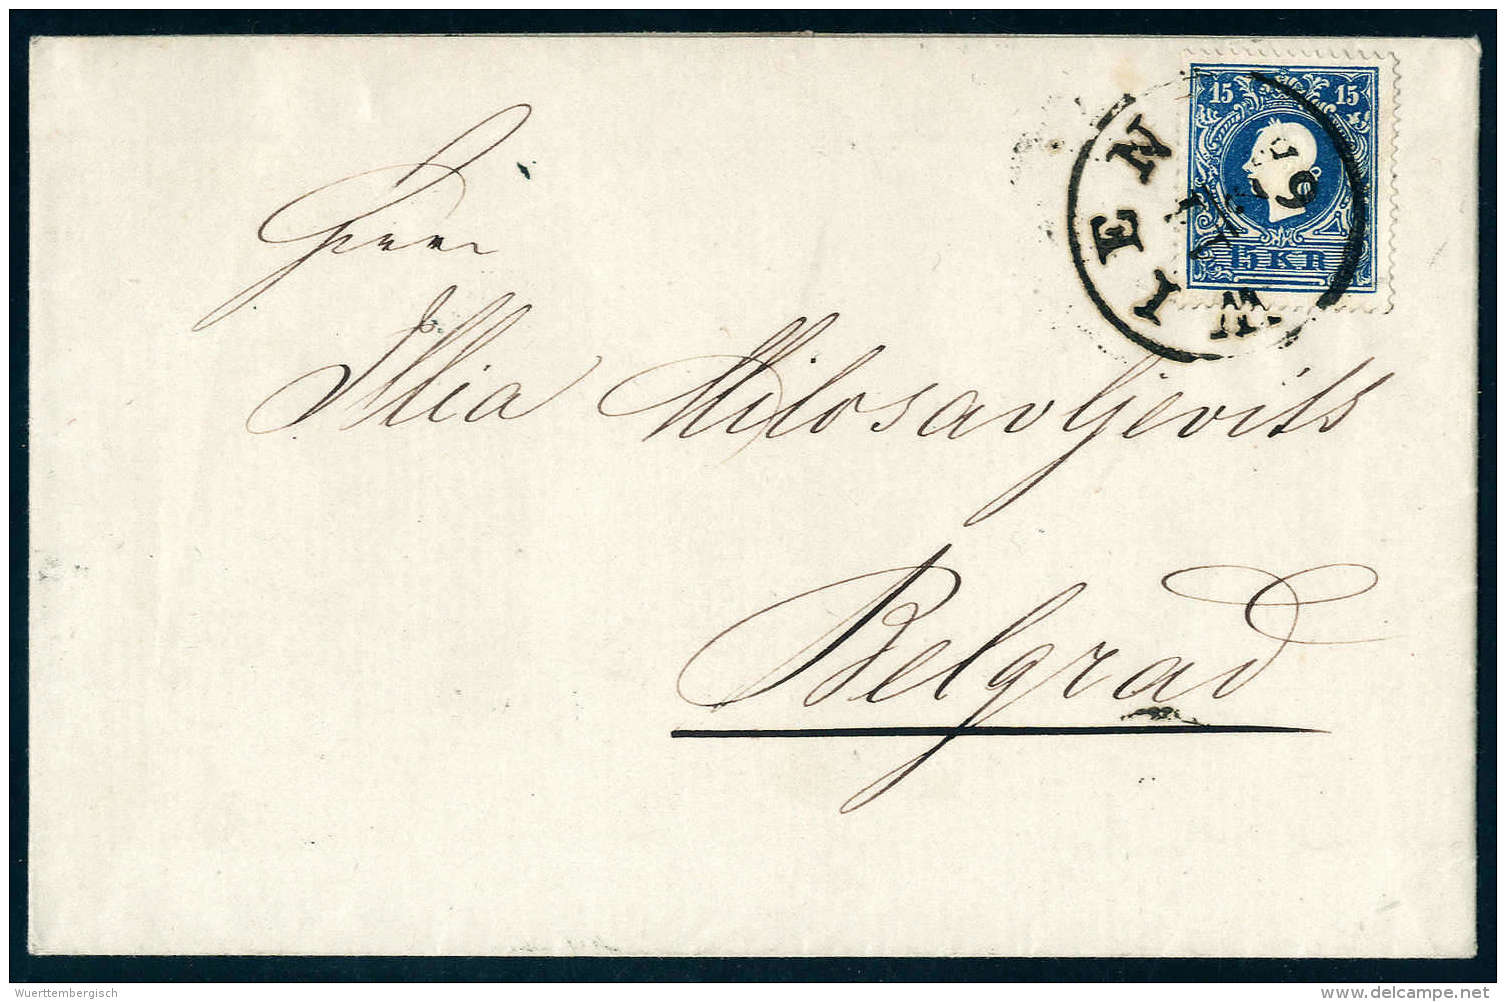 15 15
15 KR
WIEN
Herrn
Illia Milosavljevits
Belgrad
Wuerttembergisch
delcampe.net